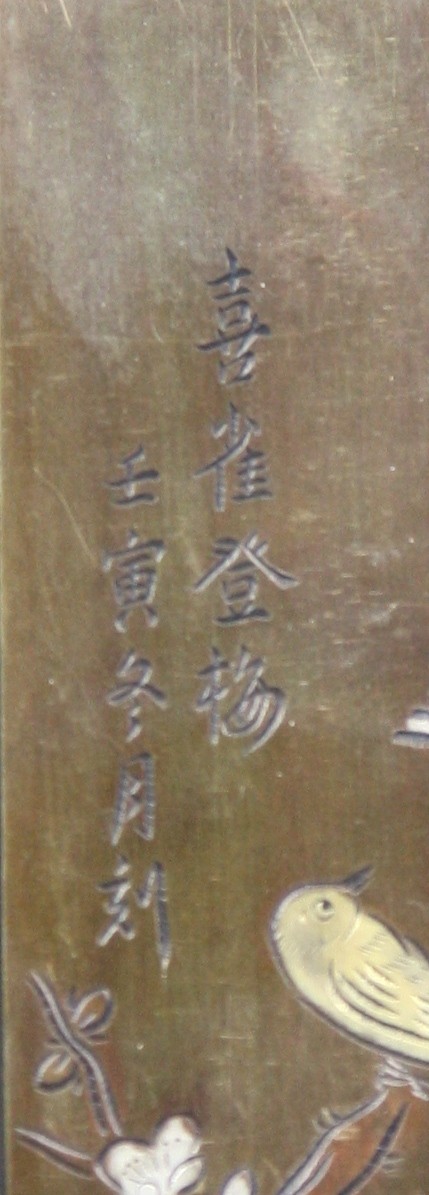 喜雀登梅
壬寅冬月刻